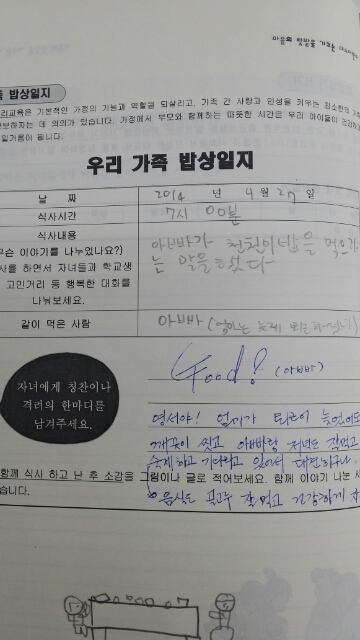 마음의 텃밭을 가꾸는
족 밥상일지
리교육은 기본적인 가정의 기본과 역할을 되살리고, 가족 간 사랑과 인성을 키우는 최소한의
보하자는 데 의의가 있습니다. 가정에서 부모와 함께하는 따뜻한 시간은 우리 아이들이 건강하
밑거름이 됩니다.
우리 가족 밥상일지
날 짜
2014 년 4월 27일
식사시간
7시 00분
식사내용
무슨 이야기를 나누었나요?)
사를 하면서 자녀들과 학교생
고민거리 등 행복한 대화를
나눠보세요.
아빠가 천천히 밥을 먹으라
는 말을 했다
같이 먹은 사람
아빠 (엄마는 늦게 퇴근하셨기)
자녀에게 칭찬이나
격려의 한마디를
남겨주세요.
Good! (아빠)
영서야! 엄마가 퇴근이 늦었어도
깨끗이 씻고 아빠랑 저녁도 잘먹고
숙제하고 기다리고 있어서 대견하구나.
음식도 골고루 잘 먹고 건강하게
함께 식사 하고 난 후 소감을 그림이나 글로 적어보세요. 함께 이야기 나눈
습니다.